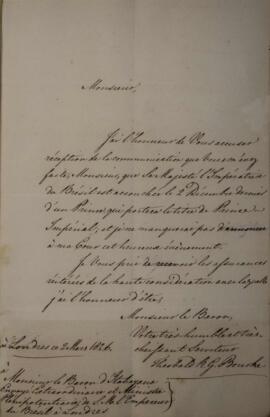 Monsieur,
J'ai l'honneur de Vous accuser
réception de la communication que Vous m'avez
faite, Monsieur, que Sa Majesté l'Impératrice
du Brésil est accouchée le 2 Décembre dernier
d'un Prince, qui portera le titre de Prince
Impérial, et je ne manquerai pas d'annoncer
à ma Cour cet heureux événement.
Je Vous prie de recevoir les assurances
réitérées de la haute considération avec laquelle
j'ai l'honneur d'être,
Monsieur le Baron,
Votre très humble et très
obéissant Serviteur
à Londres ce 2 Mars 1826.
à
Monsieur le Baron d'Itabayana
Envoyé Extraordinaire et Ministre
Plénipotentiaire de S. M. l'Empereur
du Brésil à Londres